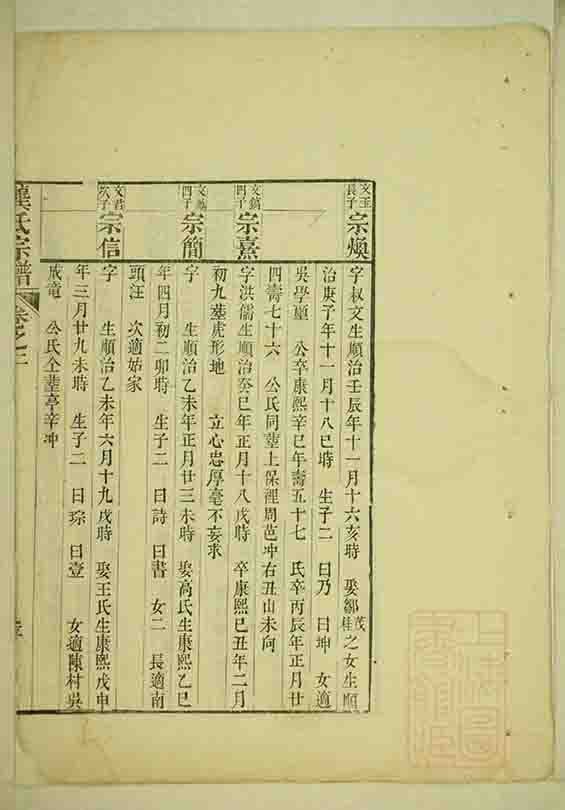 文玉長子 宗煥
字叔文生順治壬辰年十一月十六亥時 娶鄒茂桂之女生順
治庚子年十一月十八巳時 生子二 曰乃 曰坤 女適
吳學顯 公卒康熙辛巳年壽五十七 氏卒丙辰年正月廿
四壽七十六 公氏同塟上保裡周芭冲右丑山未向
四子 宗熹
字洪儒生順治癸巳年正月十八戌時 卒康熙己丑年二月
初九塟虎形地 立心忠厚毫不妄求
四子 宗簡
字 生順治乙未年正月廿三未時 娶高氏生康熙乙巳
年四月初二卯時 生子二 曰詩 曰書 女二 長適南
頭汪 次適姑家
文君次子 宗信
字 生順治乙未年六月十九戌時 娶王氏生康熙戊申
年三月廿九未時 生子二 曰琮 曰壹 女適陳村吳
成竜 公氏仝塟亭辛冲
氏宗譜 卷之二